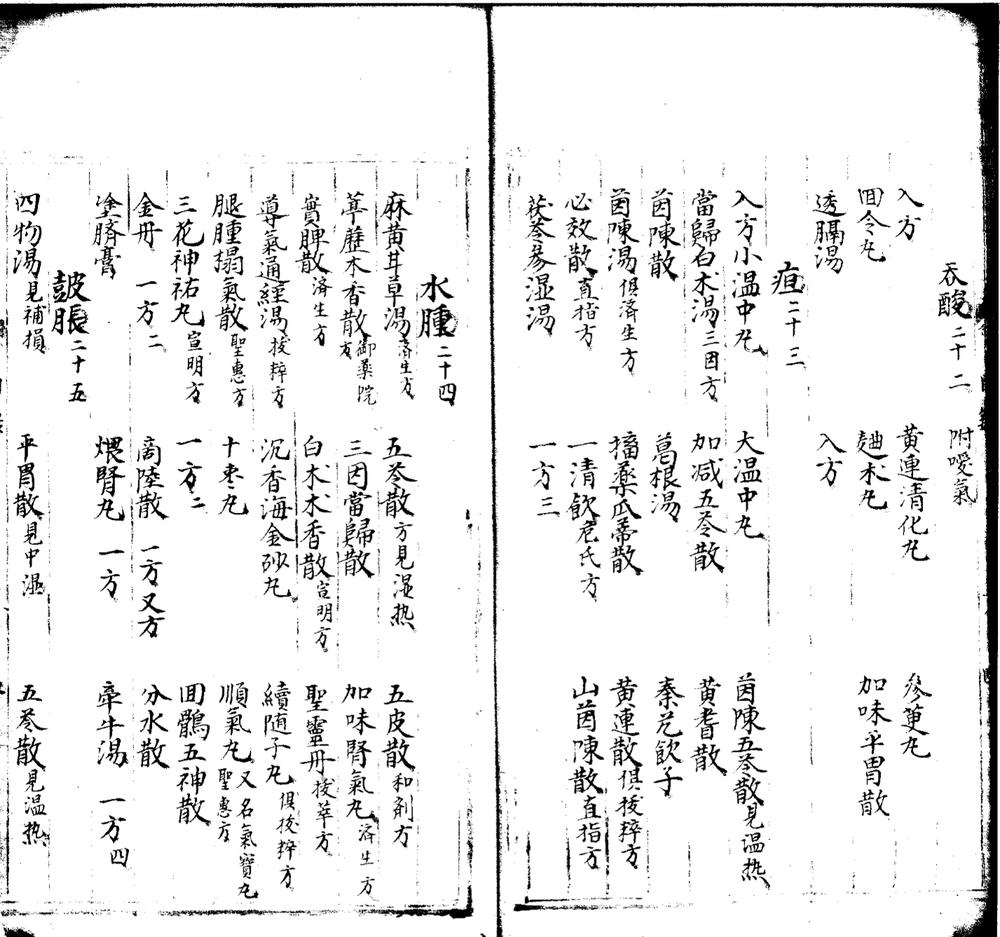 吞酸二十二 附噯氣
入方 黃連清化丸 參萸丸
囬令丸 麯术丸 加味平胃散
透膈湯 入方
疸二十三
入方小溫中丸 大溫中丸 茵陳五苓散見溫热
當歸白术湯三因方 加减五苓散 黃耆散
茵陳散 葛根湯 秦艽飲子
茵陳湯俱濟生方 搐藥瓜蒂散 黃連散俱拔粹方
必效散直指方 一清飲危氏方 山茵陳散直指方
茯苓參湿湯 一方三
水腫二十四
麻黃甘草湯济生方 五苓散方見湿热 五皮散和剤方
葶藶木香散御藥院方 三因當歸散 加味腎氣丸济生方
實脾散濟生方 白术木香散宣明方 聖靈丹拔萃方
導氣通經湯拔粹方 沉香海金砂丸 續随子丸俱拔粹方
腿腫搨氣散聖惠方 十枣丸 順氣丸又名氣寶丸聖惠方
三花神祐丸宣明方 一方二 囬鶻五神散
金丹 一方二 商陸散 一方又方 分水散
塗臍膏 煨腎丸 一方 牵牛湯 一方四
皷脹二十五
四物湯見補損 平胃散見中湿 五苓散見溫热